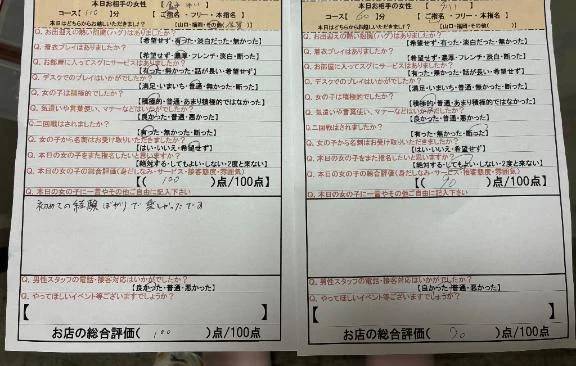 本日お相手の女性
コース【 110 】分 【 ご指名 ・ フリー ・ 本指名 】
本日はどちらからお越しいただきましたか?
Q. お出迎えの熱い抱擁(ハグ)はありましたか?
【希望せず・有った・淡白だった・無かった】
Q. 着衣プレイはありましたか?
【希望せず・濃厚・フレンチ・淡白・断った】
Q. お部屋に入ってスグにサービスはありましたか?
【有った・無かった・話が長い・希望せず】
Q. デスケでのプレイはいかがでしたか?
【満足・いまいち・普通・無かった・断った】
Q. 女の子は積極的でしたか?
【積極的・普通・あまり積極的ではなかった】
Q. 気遣いや言葉使い、マナーなどはいかがでしたか?
【良かった・普通・悪かった】
Q. 二回戦はされましたか?
【有った・無かった・断った】
Q. 女の子から名刺はお受け取りいただきましたか?
【はい・いいえ・希望せず】
Q. 本日の女の子をまた指名したいと思いますか?
【絶対する・してもよい・しない・2度と来ない】
Q. 本日の女の子の総合評価(身だしなみ・サービス・接客態度・雰囲気)
【( 100 )点/100点】
Q. 本日の女の子に一言やその他ご自由に記入下さい
初めての経験ばかりで
Q. 男性スタッフの電話・接客対応はいかがでしたか?
【良かった・普通・悪かった】
Q. やってほしいイベント等ございますでしょうか?
【 】
お店の総合評価( 100 )点/100点
本日お相手の女性
コース【 60 】分 【 ご指名 ・ フリー ・ 本指名 】
本日はどちらからお越しいただきましたか?
Q. お出迎えの熱い抱擁(ハグ)はありましたか?
【希望せず・有った・淡白だった・無かった】
Q. 着衣プレイはありましたか?
【希望せず・濃厚・フレンチ・淡白・断った】
Q. お部屋に入ってスグにサービスはありましたか?
【有った・無かった・話が長い・希望せず】
Q. デスケでのプレイはいかがでしたか?
【満足・いまいち・普通・無かった・断った】
Q. 女の子は積極的でしたか?
【積極的・普通・あまり積極的ではなかった】
Q. 気遣いや言葉使い、マナーなどはいかがでしたか?
【良かった・普通・悪かった】
Q. 二回戦はされましたか?
【有った・無かった・断った】
Q. 女の子から名刺はお受け取りいただきましたか?
【はい・いいえ・希望せず】
Q. 本日の女の子をまた指名したいと思いますか?
【絶対する・してもよい・しない・2度と来ない】
Q. 本日の女の子の総合評価(身だしなみ・サービス・接客態度・雰囲気)
【( 90 )点/100点】
Q. 本日の女の子に一言やその他ご自由に記入下さい
Q. 男性スタッフの電話・接客対応はいかがでしたか?
【良かった・普通・悪かった】
Q. やってほしいイベント等ございますでしょうか?
【 】
お店の総合評価( 90 )点/100点